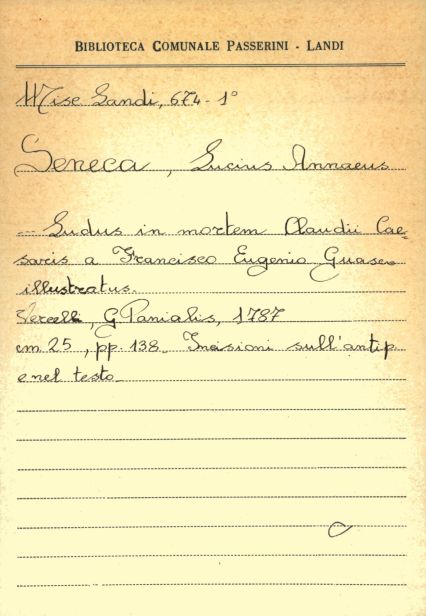 BIBLIOTECA COMUNALE PASSERINI - LANDI
Misc Landi, 674-1°
Seneca, Lucius Annaeus
--- Ludus in mortem Claudii Cae-
saris a Francisco Eugenio Guasco
illustratus.
Vercelli, G. Panialis, 1787
cm 25, pp. 138. Incisioni sull'antip
e nel testo.